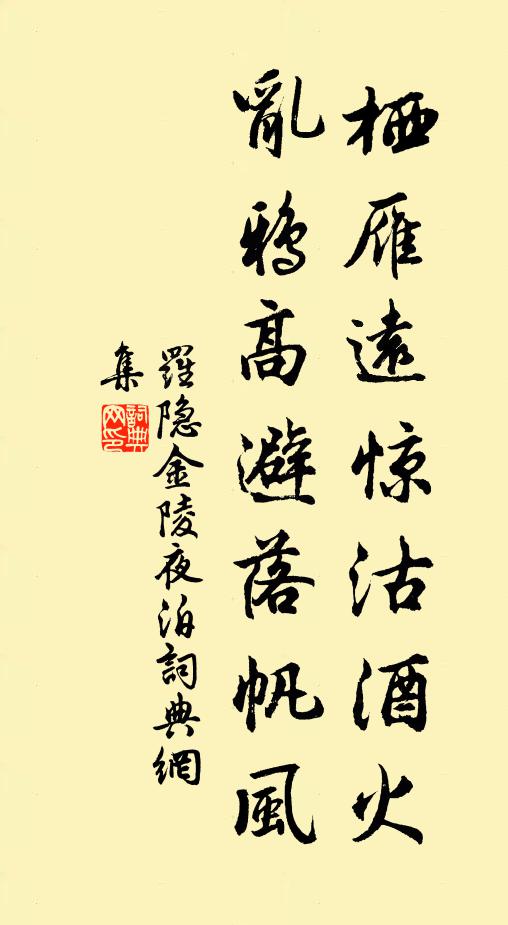 栖雁遠惊沽酒火
亂鴉高避落帆風
羅隐金陵夜泊詞典網
集
詞典
网印